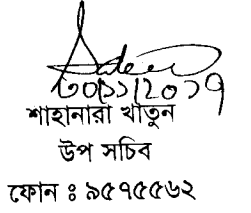 ৩০/১১/২০১৭
শাহানারা খাতুন
উপ সচিব
ফোন ঃ ৯৫৭৫৫৬২